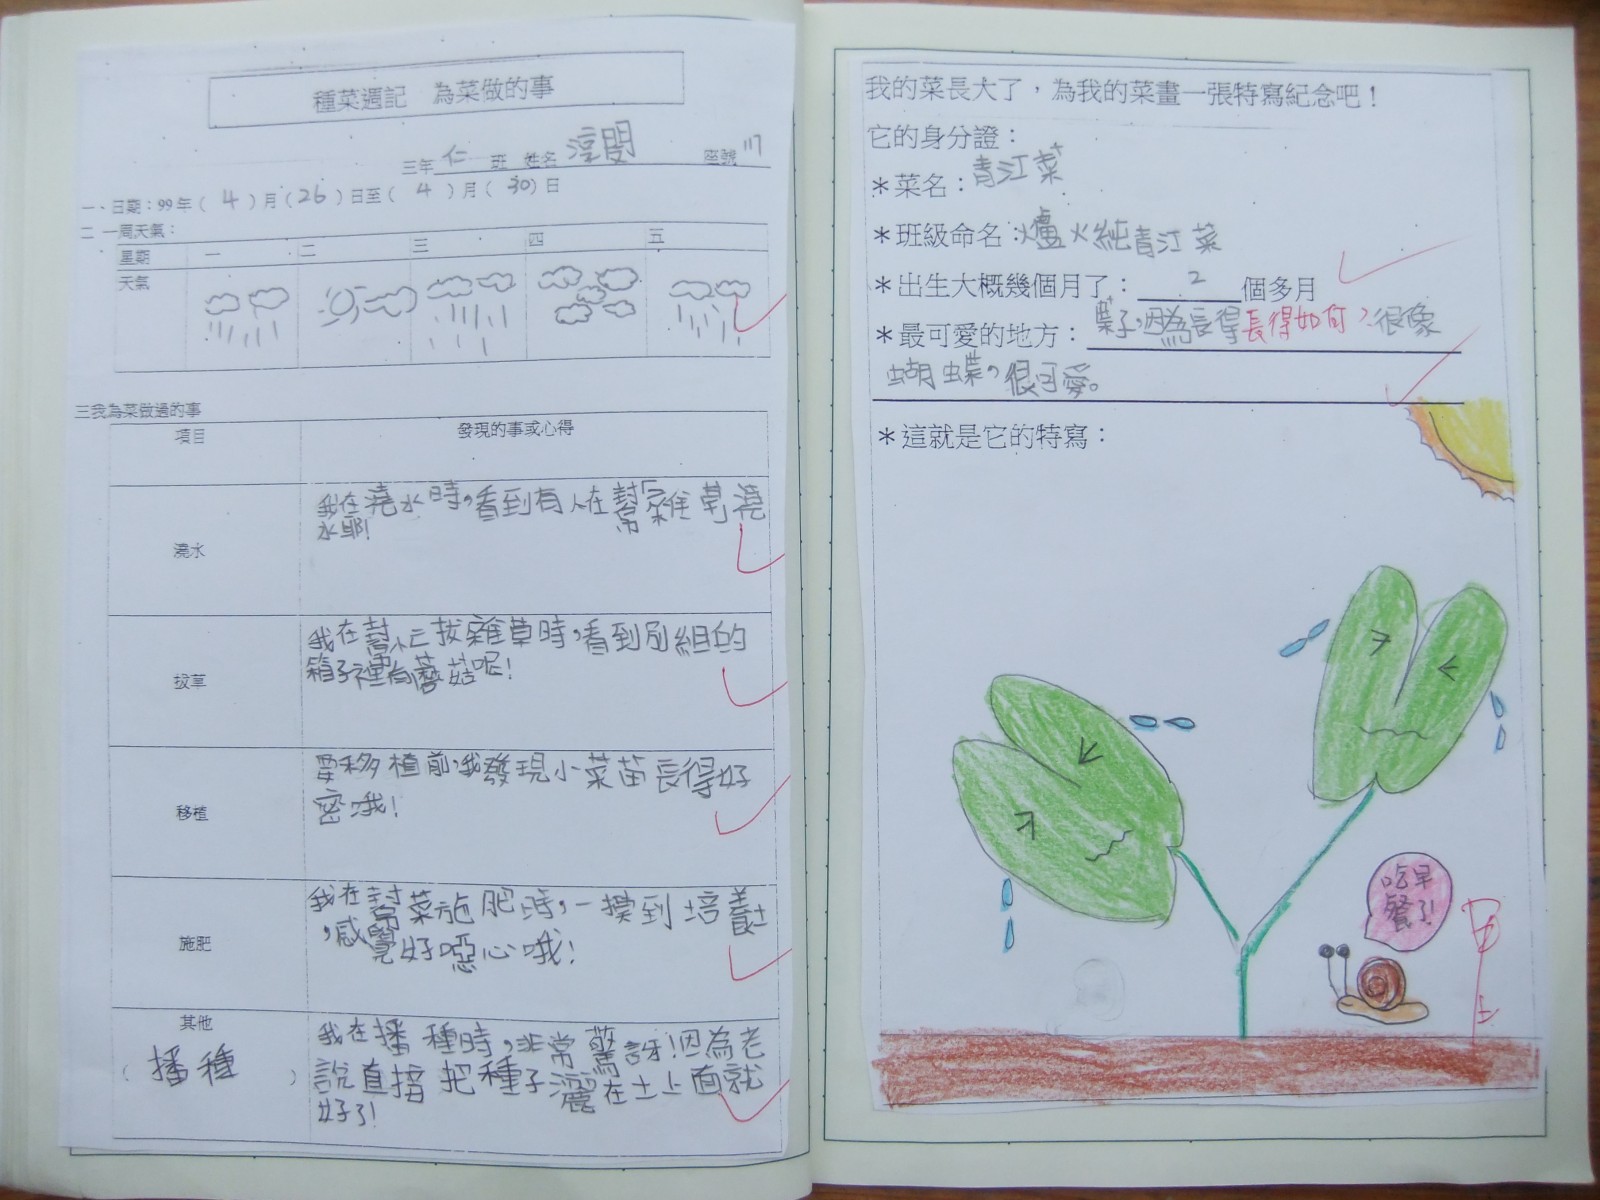 種菜週記 為菜做的事
三年 仁 班 姓名 淳閔 座號 17
一、日期：99年（4）月（26）日至（4）月（30）日
二 一周天氣：
星期 一 二 三 四 五
天氣
三我為菜做過的事
項目 發現的事或心得
澆水
我在澆水時，看到有人在幫雜草澆
水耶!
拔草
我在幫忙拔雜草時，看到別組的
箱子裡有蘑菇呢!
移植
要移植前，我發現小菜苗長得好
密哦!
施肥
我在幫菜施肥時，一摸到培養土
，感覺好噁心哦!
其他
（播種）
我在播種時，非常驚訝!因為老
說直接把種子灑在土上面就
好了!
我的菜長大了，為我的菜畫一張特寫紀念吧！
它的身分證：
＊菜名：青江菜
＊班級命名：爐火純青江菜
＊出生大概幾個月了：2個多月
＊最可愛的地方：葉子，因為長得長得如何？很像
蝴蝶，很可愛。
＊這就是它的特寫：
吃早
餐了!